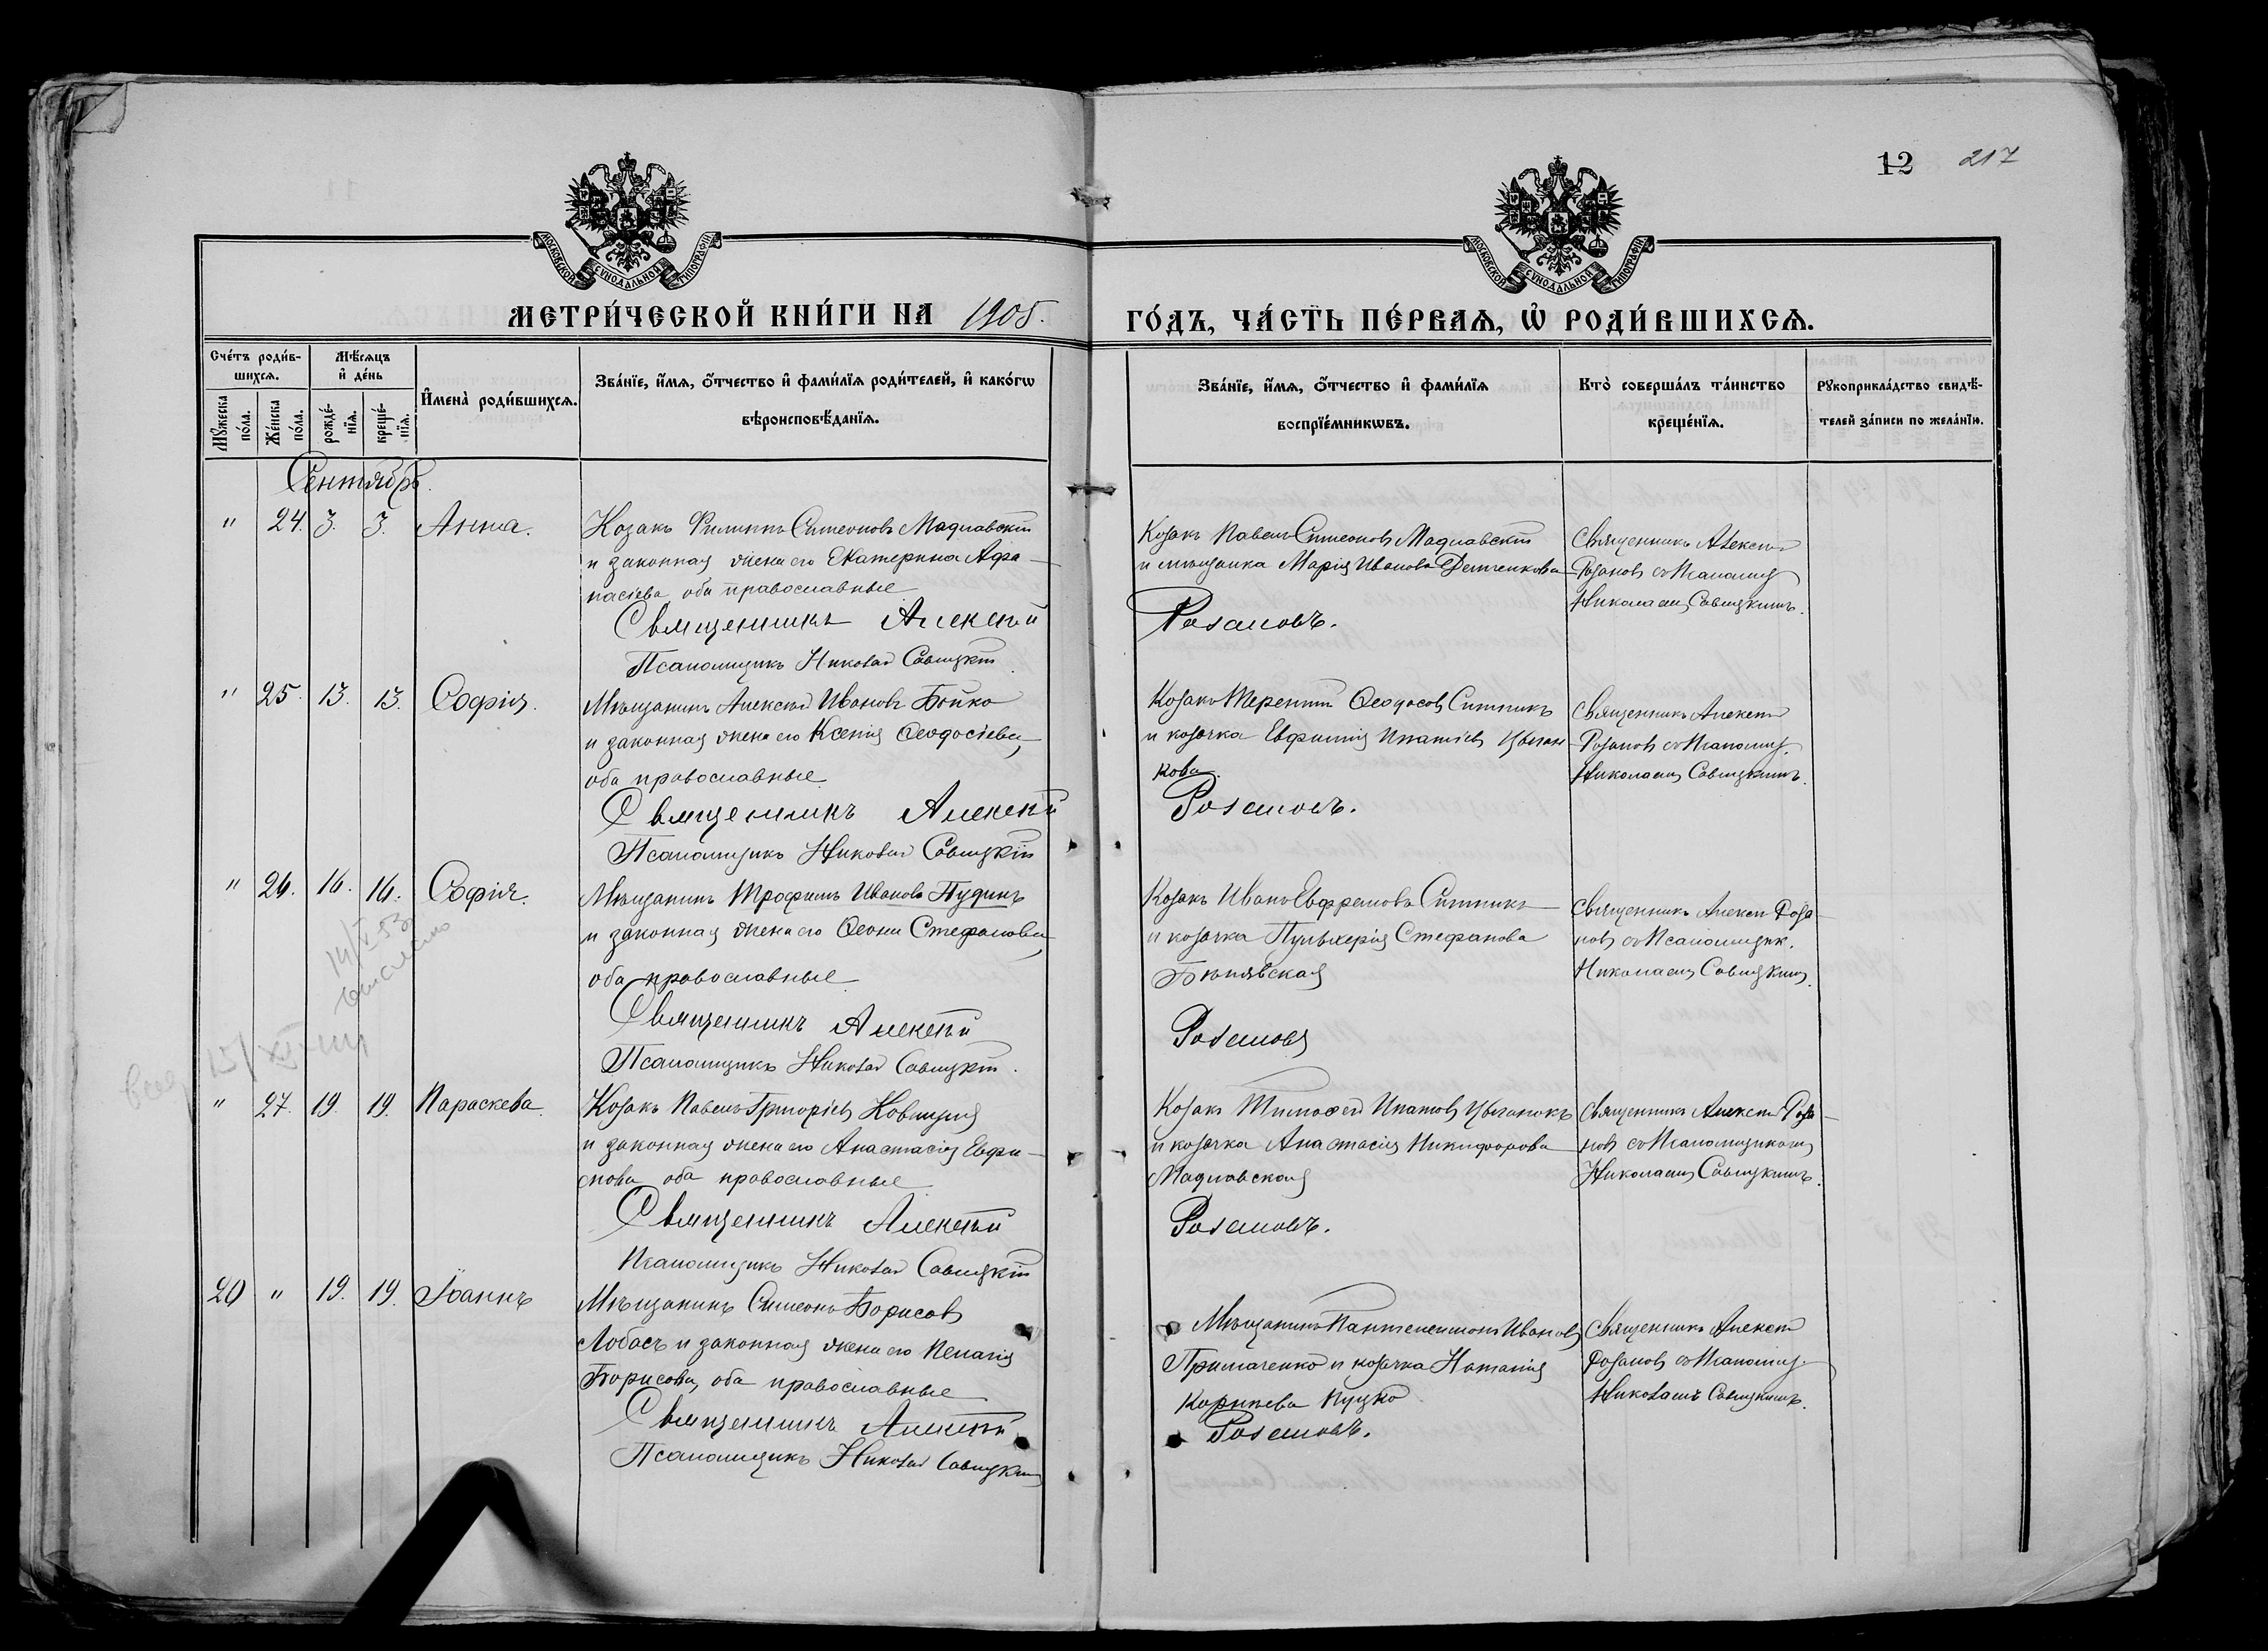 12 217
МОСКОВСКОЙ СѴНОДАЛЬНОЙ ТИПОГРАФІИ
МОСКОВСКОЙ СѴНОДАЛЬНОЙ ТИПОГРАФІИ
МЕТРИ́ЧЕСКОЙ КНИ́ГИ НА 1905.
ГО́ДЪ, ЧА́СТЬ ПЕ́РВАЯ, Ѡ҆ РОДИ́ВШИХСЯ.
Сче́тъ роди́в-
шихся.
Мꙋ́жеска по́ла.
Же́нска по́ла.
Мѣ́сяцъ
и҆ де́нь
рожде́-
нїя.
креще́-
нїя.
И҆мена̀ роди́вшихся.
Зва́нїе, и҆́мя, ѻ҆́тчество и҆ фами́лїя роди́телей, и҆ како́гѡ
вѣроисповѣ́данїя.
Зва́нїе, и҆́мя, ѻ҆́тчество и҆ фами́лїя
воспрїе́мникѡвъ.
Кто̀ соверша́лъ та́инство
креще́нїя.
Рꙋкоприкла́дство свидѣ́-
телей за́писи по жела́нїю.
Сентябрь.
" 24. 3. 3. Анна.
Козакъ Филиппъ Симеоновъ Мадиавскій
и законная жена его Екатерина Афа-
насіева, оба православные
Священникъ Алексѣй
Псаломщикъ Николай Савицкій
Козакъ Павелъ Симеоновъ Мадиавскій
и мѣщанка Марія Иванова Демченкова
Розановъ.
Священникъ Алексѣй
Розановъ съ Псаломщ.
Николаемъ Савицкимъ.
" 25. 13. 13. Софія.
Мѣщанинъ Алексѣй Ивановъ Бойко
и законная жена его Ксенія Ѳеодосіева,
оба православные
Священникъ Алексѣй
Псаломщикъ Николай Савицкій
Козакъ Терентій Ѳеодосовъ Ситникъ
и козачка Евфимія Ипатіева Цыган-
кова.
Розановъ.
Священникъ Алексѣй
Розановъ съ Псаломщ.
Николаемъ Савицкимъ.
" 26. 16. 16. Софія.
Мѣщанинъ Трофимъ Ивановъ Пудикъ
и законная жена его Стефанова,
оба православные
Священникъ Алексѣй
Псаломщикъ Николай Савицкій.
Козакъ Иванъ Евфремовъ Ситникъ
и козачка Пульхерія Стефанова
Розановъ
Священникъ Алексѣй Роза-
новъ съ Псаломщик.
Николаемъ Савицкимъ.
" 27. 19. 19. Параскева.
Козакъ Павелъ Григоріевъ
и законная жена его Анастасія Евфи-
мова оба православные
Священникъ Алексѣй
Псаломщикъ Николай Савицкій
Козакъ Тимоѳей Ипатовъ Цыганокъ
и козачка Анастасія Никифорова
Мадиавская
Розановъ.
Священникъ Алексѣй Роза-
новъ съ Псаломщикомъ
Николаемъ Савицкимъ.
20 " 19. 19. Іоаннъ
Мѣщанинъ Симеонъ Борисовъ
Лобасъ и законная жена его Пелагія
Борисова, оба православные
Священникъ Алексѣй
Псаломщикъ Николай Савицкій
Мѣщанинъ Пантелеимонъ Ивановъ
Примаченко и козачка Наталія
Корнѣева Пуцко
Розановъ.
Священникъ Алексѣй
Розановъ съ Псаломщ.
Николаемъ Савицкимъ.